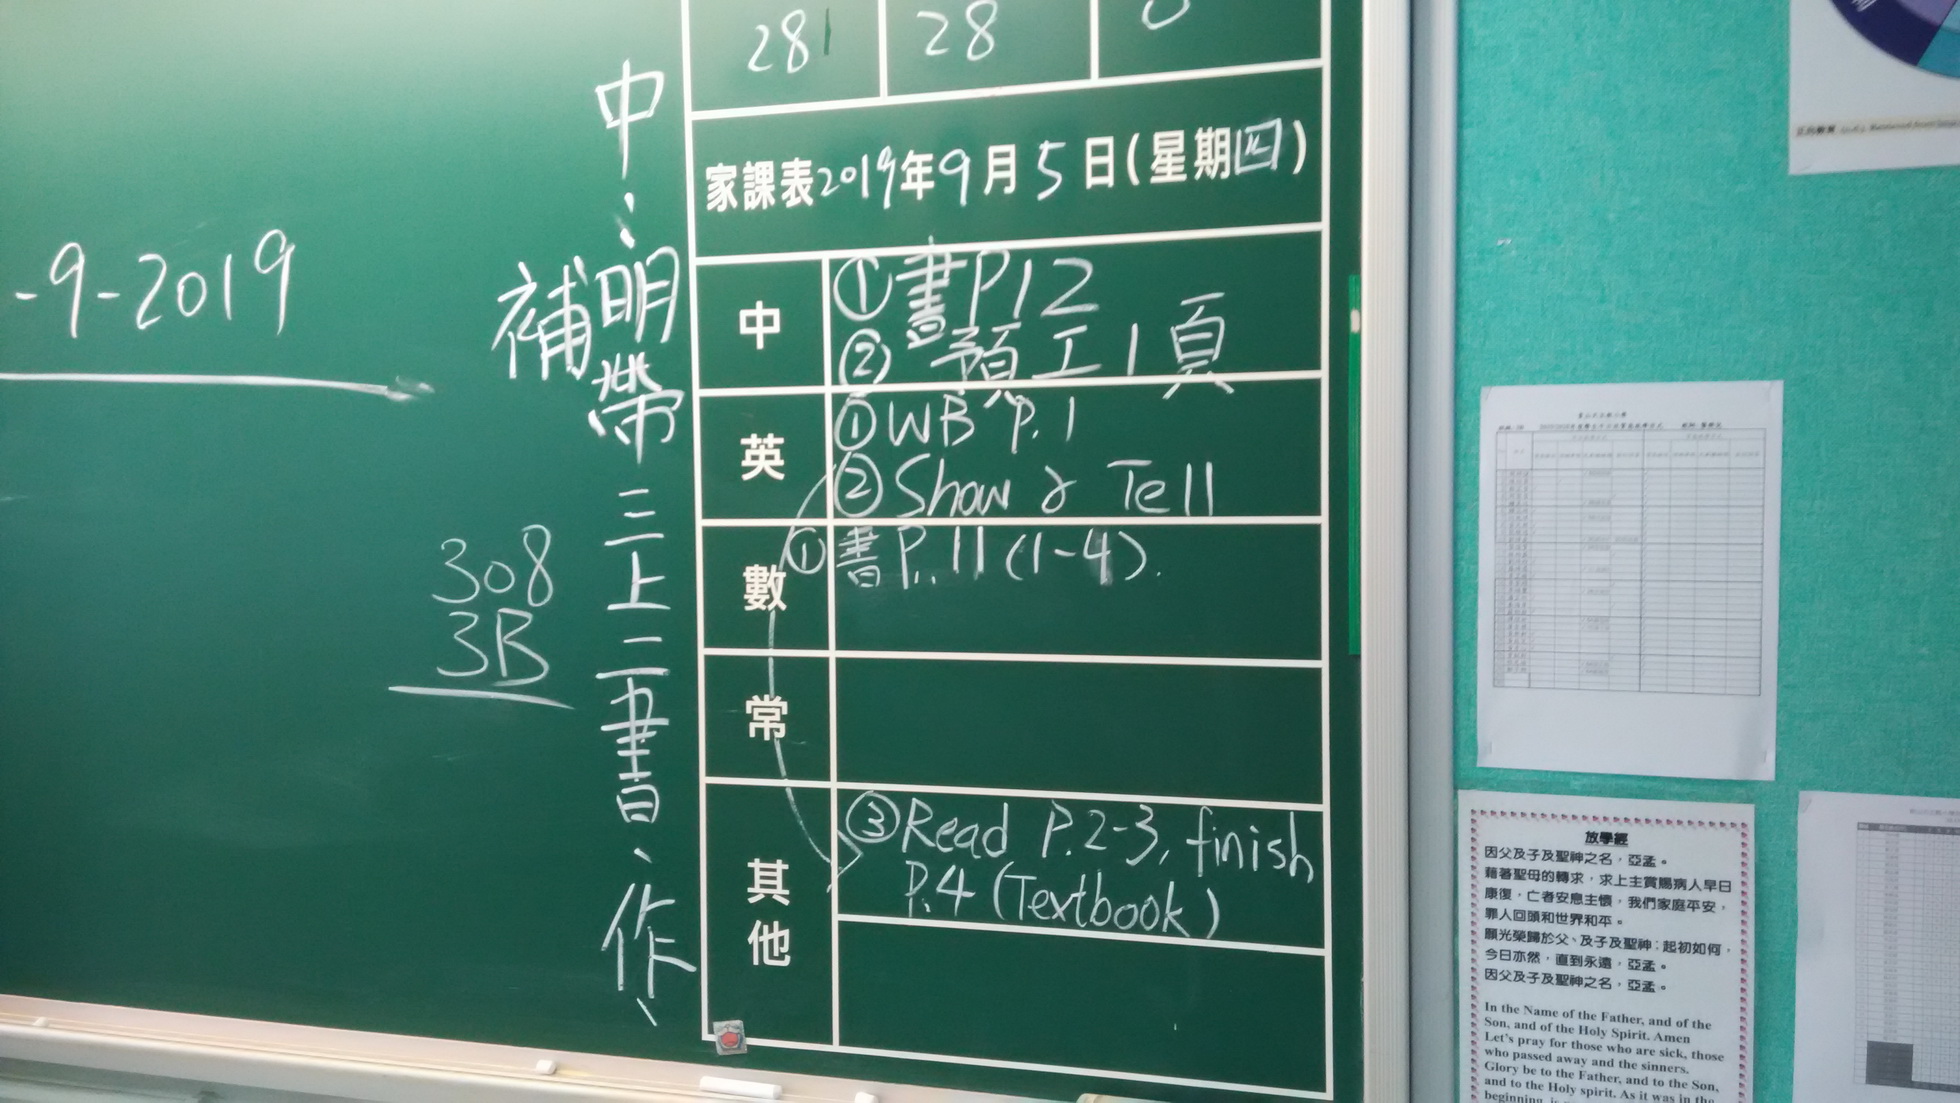 -9-2019
308
3B
中:
補
明帶三上二書、作、
28 28 0
家課表2019年9月5日(星期四)
中
①書P12
②預工1頁
英
①WB P.1
②Show & Tell
數
①書P.11(1-4).
常
其他
③Read P.2-3, finish
P.4 (Textbook)
放學經
因父及子及聖神之名,亞孟。
藉著聖母的轉求,求上主賞賜病人早日
康復,亡者安息主懷,我們家庭平安,
罪人回頭和世界和平。
願光榮歸於父、及子及聖神:起初如何,
今日亦然,直到永遠,亞孟。
因父及子及聖神之名,亞孟。
In the Name of the Father, and of the
Son, and of the Holy Spirit. Amen
Let's pray for those who are sick, those
who passed away and the sinners.
Glory be to the Father, and to the Son,
and to the Holy spirit. As it was in the
beginning,